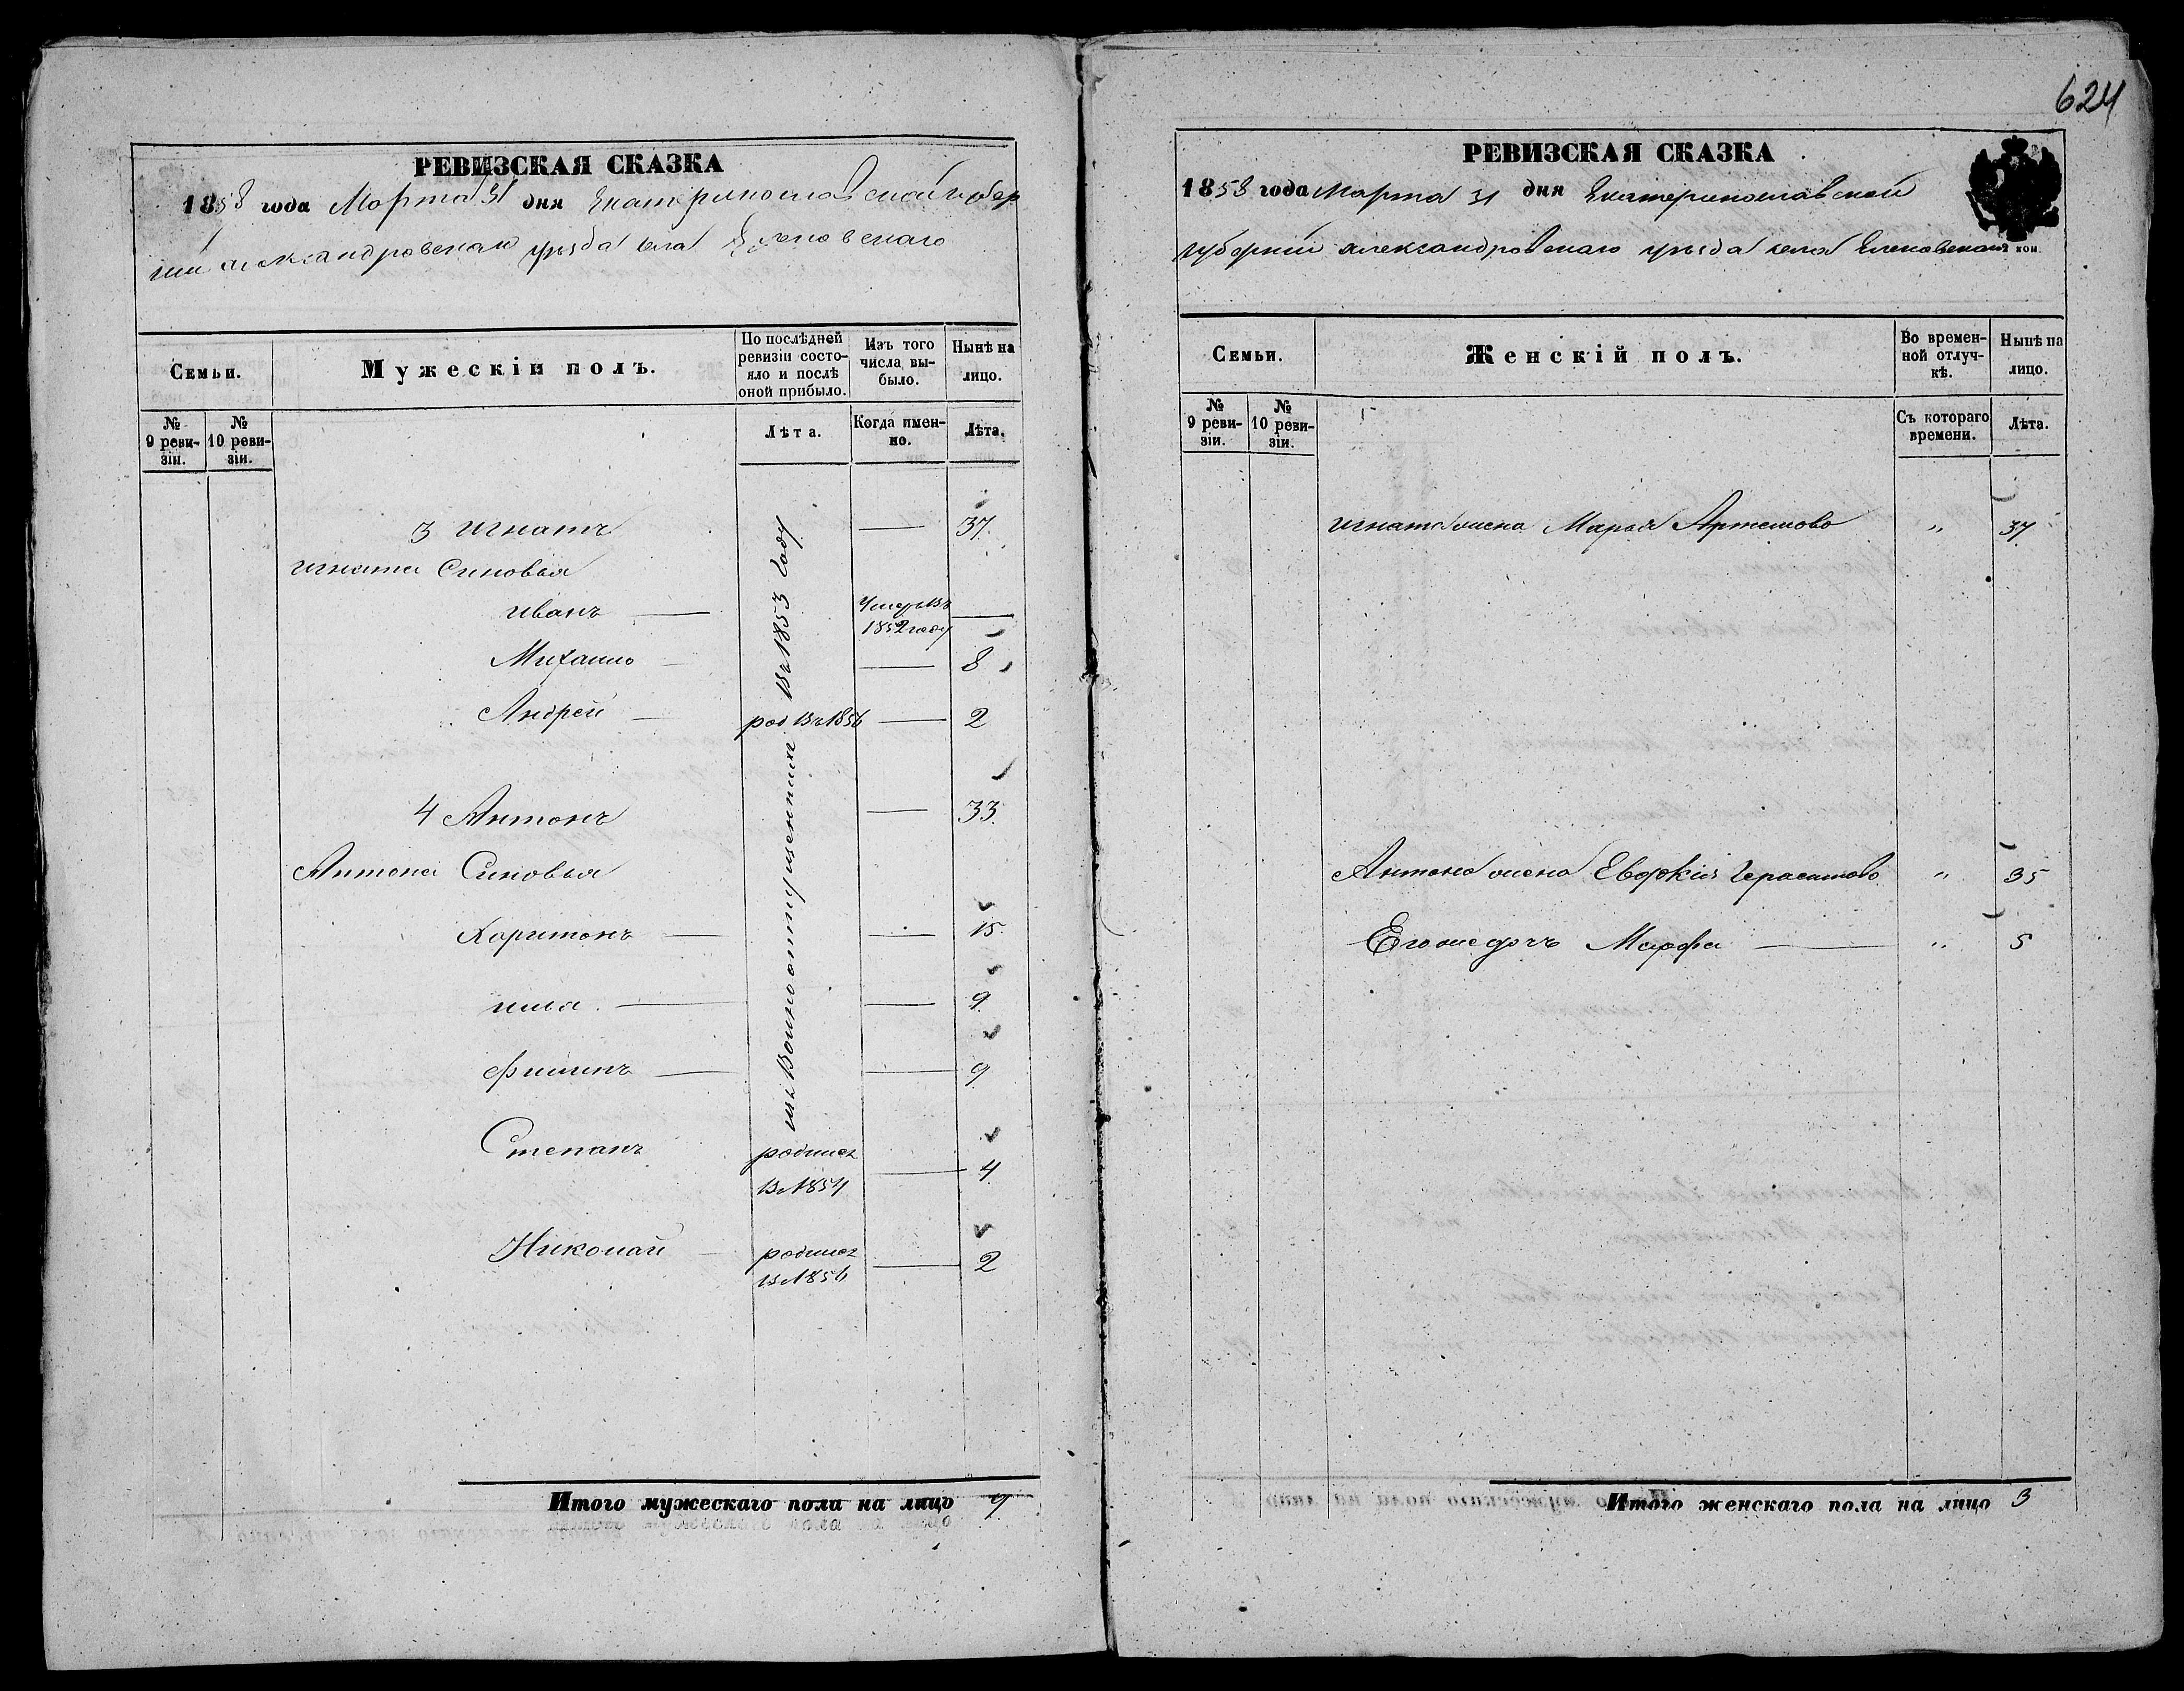 624
РЕВИЗСКАЯ СКАЗКА
1858 года Марта 31 дня Екатеринославской губер
нии александровскаго уезда села Еленовскаго
Семьи.
Мужескій полъ.
По послѣдней ревизіи состояло и послѣ оной прибыло.
Изъ того числа выбыло.
Нынѣ на лицо.
№ 9 ревизіи.
№ 10 ревизіи.
Лѣта.
Когда именно.
Лѣта.
3 Игнатъ — 37
Игната Синовья
Иванъ — Умеръ въ 1852 году —
Михаило — — 8
Андрей — род въ 1856 — 2
4 Антонъ — 33
Антона Синовья
Харитонъ — — 15
илья — — 9
Филипъ — — 9
Степанъ родился въ 1854 — 4
Николай — родился въ 1856 — 2
въ 1853 году
Итого мужескаго пола на лицо 9
РЕВИЗСКАЯ СКАЗКА
1858 года Марта 31 дня Екатеринославской
губернии александровскаго уезда села Еленовскаго
2 коп.
Семьи.
Женскій полъ.
Во временной отлучкѣ.
Нынѣ на лицо.
№ 9 ревизіи.
№ 10 ревизіи.
Съ котораго времени.
Лѣта.
Игната жена Марья Артемова " 37
Антона жена Евдокія Герасимова " 35
Его же дочь Марфа — " 5
Итого женскаго пола на лицо 3